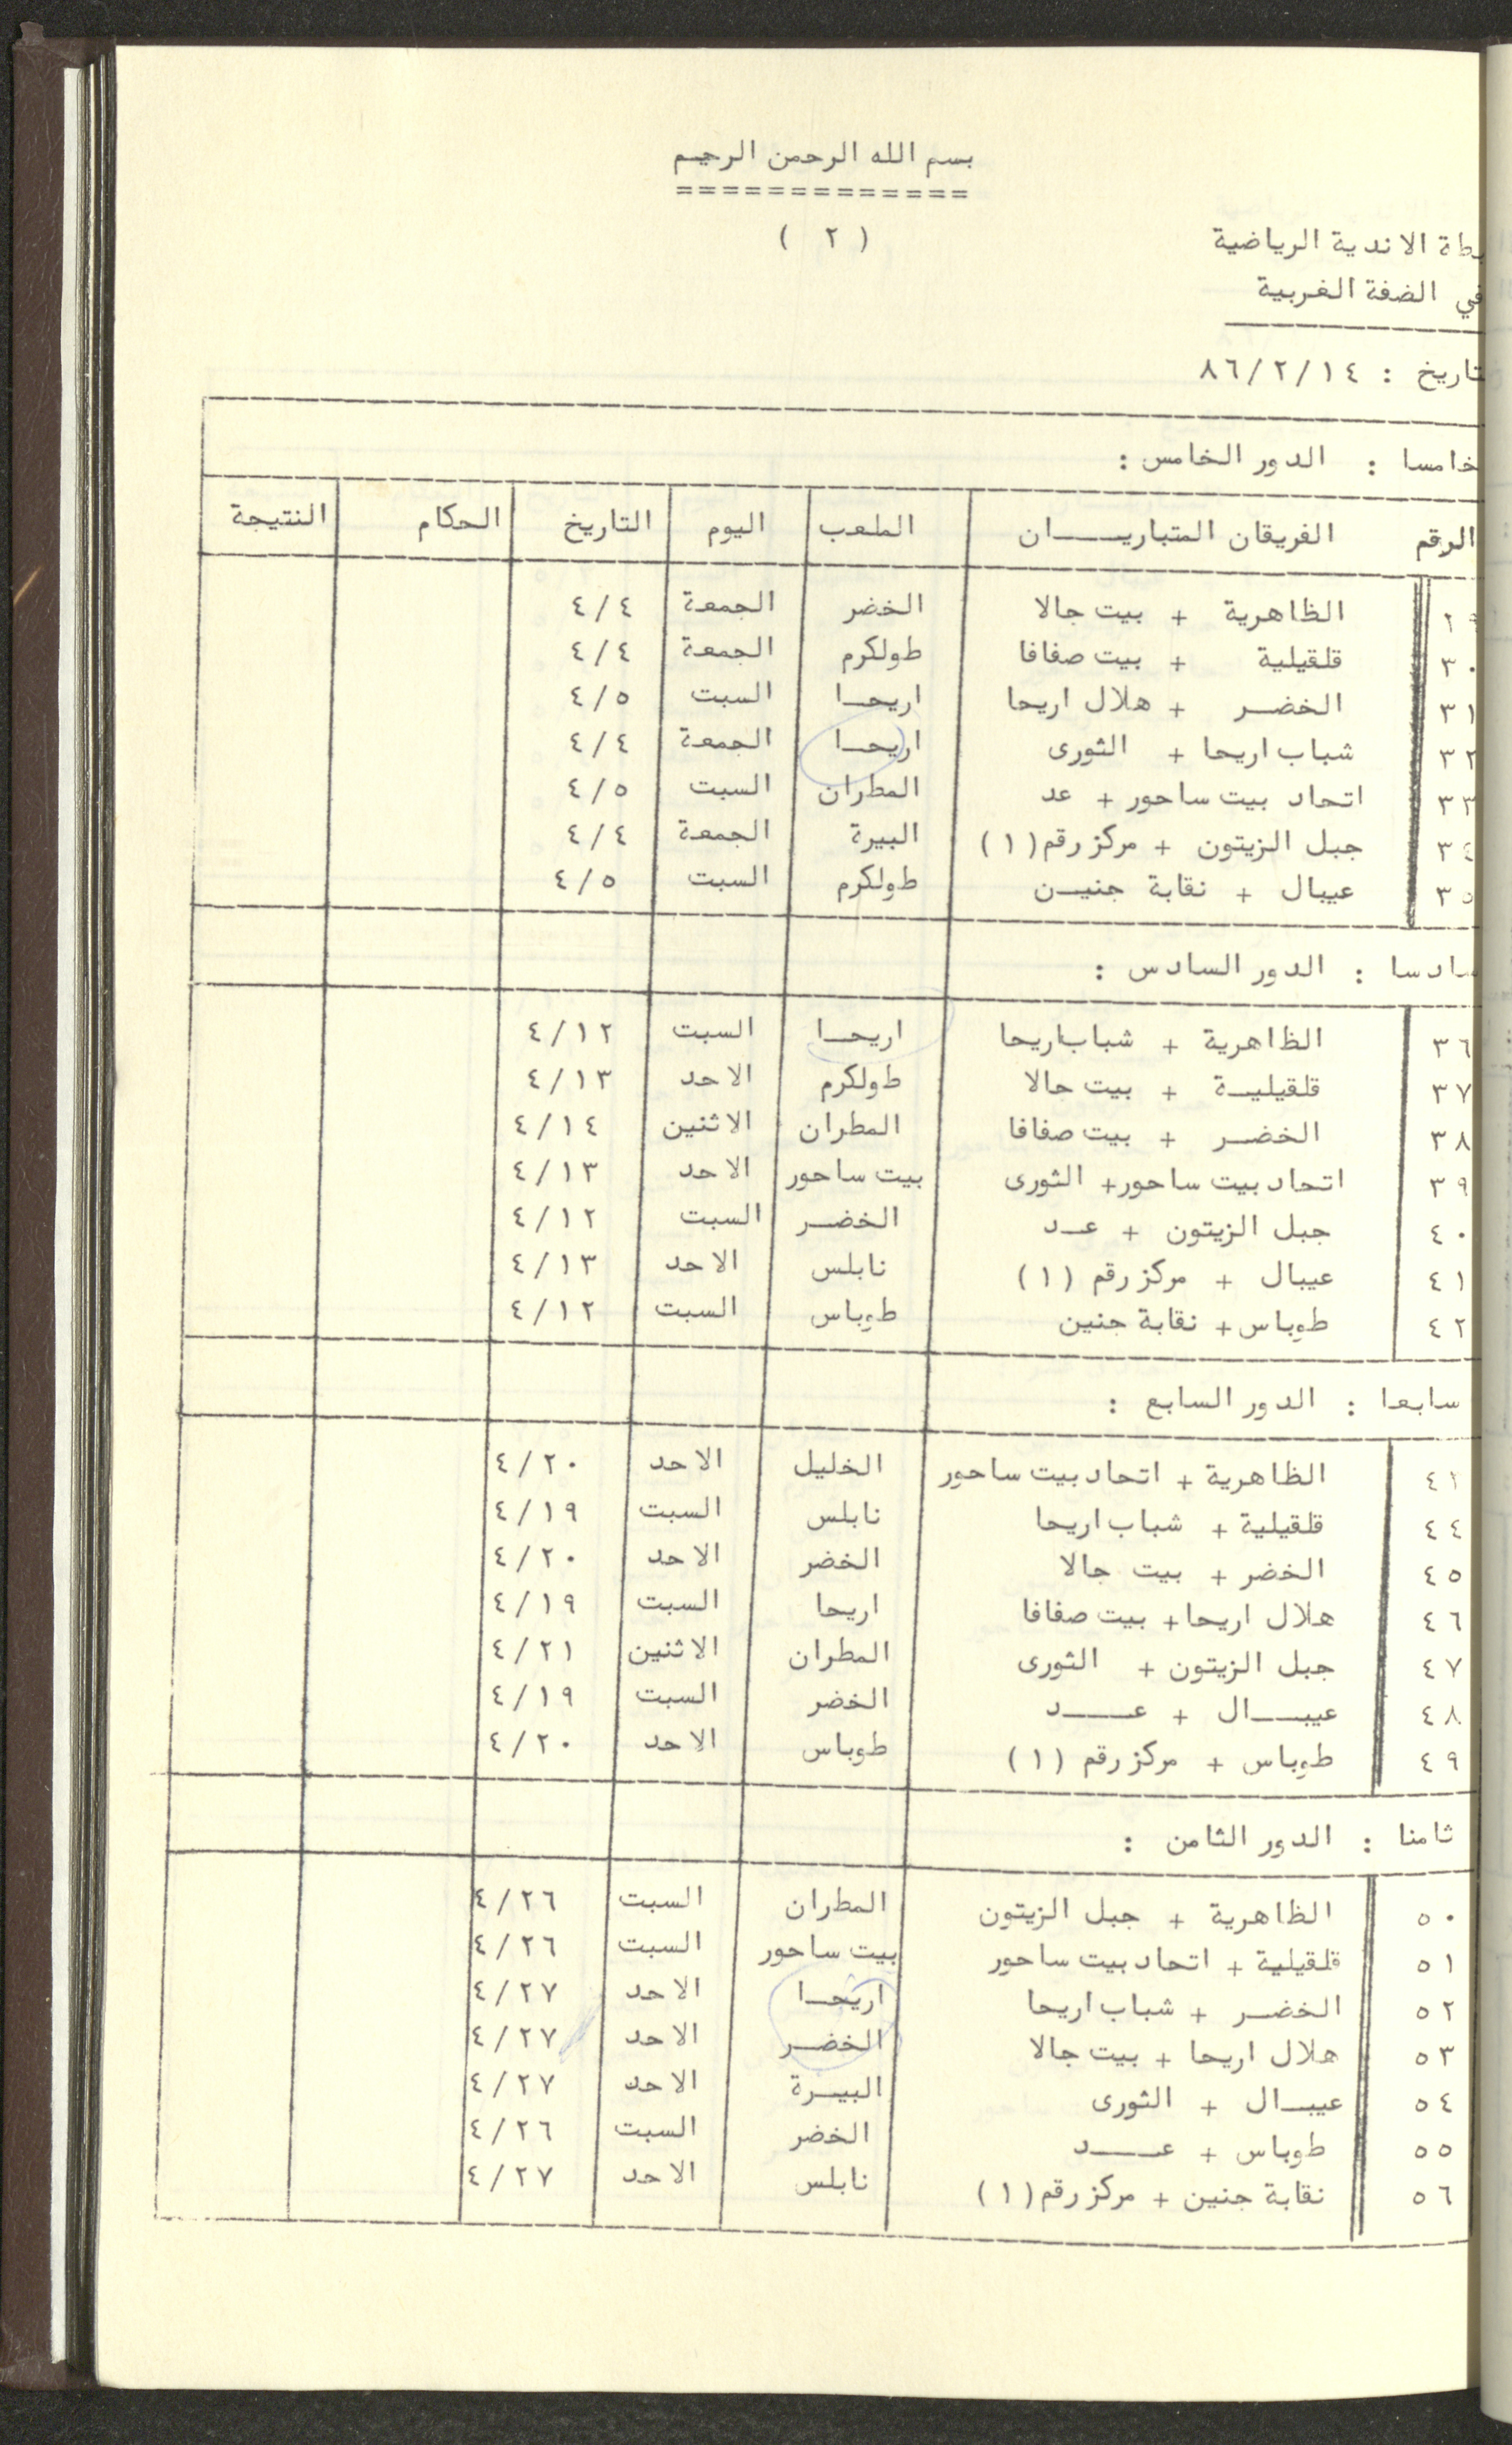 بسم الله الرحمن الرحيم
=============
( ٢ )
بطة الاندية الرياضية
في الضفة الغربية
تاريخ : ٨٦/٢/١٤
خامسا : الدور الخامس :
الرقم الفريقان المتباريـــان الملعب اليوم التاريخ الحكام النتيجة
٢٩ الظاهرية + بيت جالا الخضر الجمعة ٤/٤
٣٠ قلقيلية + بيت صفافا طولكرم الجمعة ٤/٤
٣١ الخضـر + هلال اريحا اريحـا السبت ٤/٥
٣٢ شباب اريحا + الثورى اريحـا الجمعة ٤/٤
٣٣ اتحاد بيت ساحور + عد المطران السبت ٤/٥
٣٤ جبل الزيتون + مركز رقم (١) البيرة الجمعة ٤/٤
٣٥ عيبال + نقابة جنيـن طولكرم السبت ٤/٥
سادسا : الدور السادس :
٣٦ الظاهرية + شباب اريحا اريحـا السبت ٤/١٢
٣٧ قلقيليـة + بيت حالا طولكرم الاحد ٤/١٣
٣٨ الخضـر + بيت صفافا المطران الاثنين ٤/١٤
٣٩ اتحاد بيت ساحور+ الثورى بيت ساحور الاحد ٤/١٣
٤٠ جبل الزيتون + عـد الخضـر السبت ٤/١٢
٤١ عيبال + مركز رقم (١) نابلس الاحد ٤/١٣
٤٢ طوباس + نقابة جنين طوباس السبت ٤/١٢
سابعا : الدور السابع :
الظاهرية + اتحاد بيت ساحور الخليل الاحد ٤/٢٠
٤٤ قلقيلية + شباب اريحا نابلس السبت ٤/١٩
٤٥ الخضر + بيت جالا الخضر الاحد ٤/٢٠
٤٦ هلال اريحا+ بيت صفافا اريحا السبت ٤/١٩
٤٧ جبل الزيتون + الثورى المطران الاثنين ٤/٢١
٤٨ عيبــال + عــــد الخضر السبت ٤/١٩
٤٩ طوباس + مركز رقم (١) طوباس الاحد ٤/٢٠
ثامنا : الدور الثامن :
٥٠ الظاهرية + جبل الزيتون المطران السبت ٤/٢٦
٥١ قلقيلية + اتحاد بيت ساحور بيت ساحور السبت ٤/٢٦
٥٢ الخضـر + شباب اريحا اريحـا الاحد ٤/٢٧
٥٣ هلال اريحا + بيت جالا الخضـر الاحد ٤/٢٧
٥٤ عيبـال + الثورى البيـرة الاحد ٤/٢٧
٥٥ طوباس + عــــد الخضر السبت ٤/٢٦
٥٦ نقابة جنين + مركز رقم (١) نابلس الاحد ٤/٢٧